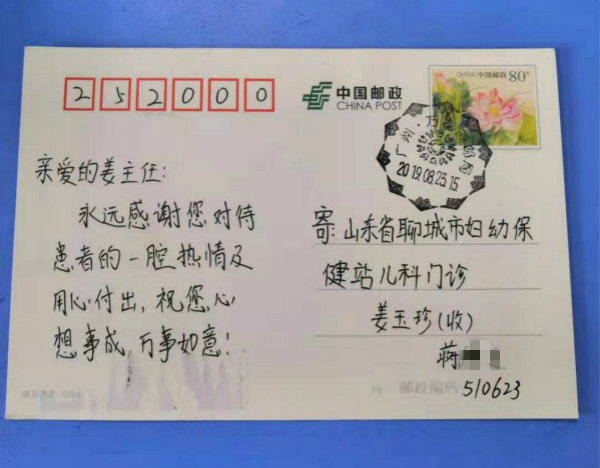 252000
中国邮政
CHINA POST
CHINA 中国邮政 80分
广州
2019.08.23.15
亲爱的姜主任：
永远感谢您对待
患者的一腔热情及
用心付出，祝您心
想事成，万事如意！
寄：山东省聊城市妇幼保
健站儿科门诊
姜玉珍（收）
蒋
510623